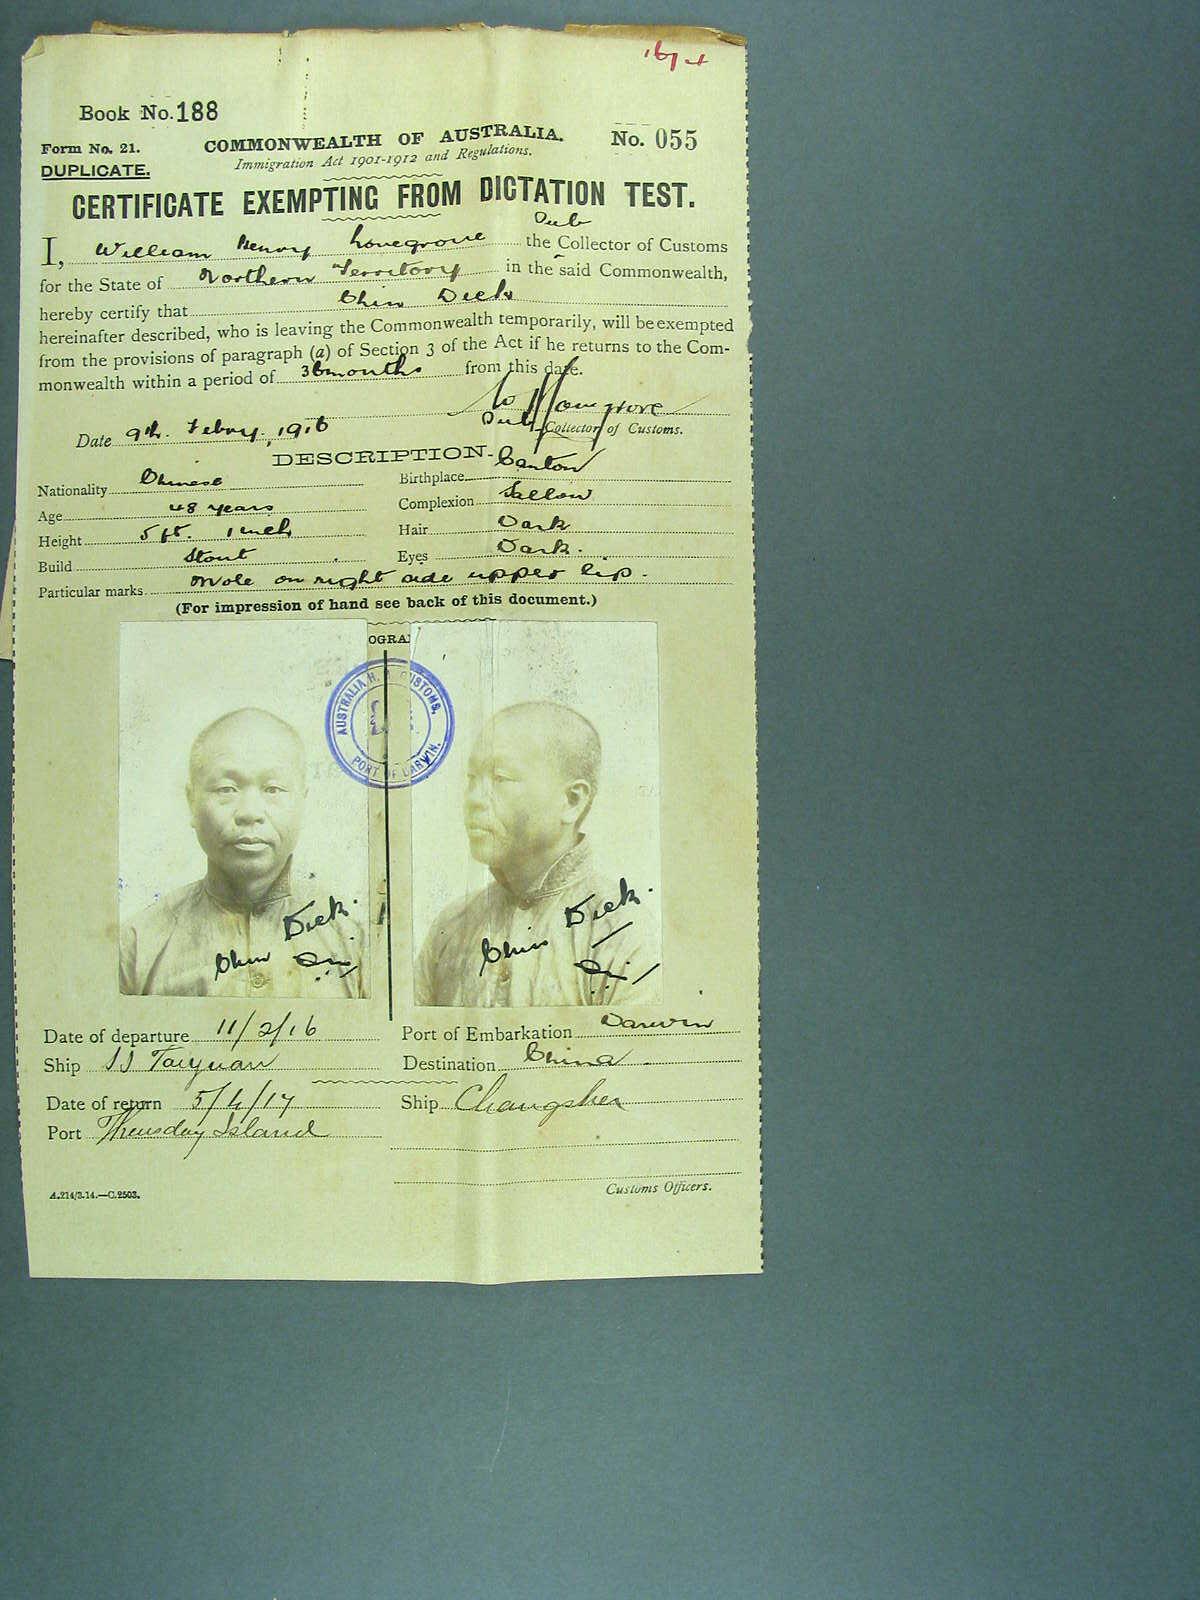 Book No. 188
Form No. 21.
COMMONWEALTH OF AUSTRALIA.
No. 055
DUPLICATE.
Immigration Act 1901-1912 and Regulations.
CERTIFICATE EXEMPTING FROM DICTATION TEST.
I, William Henry Lovegrove the Sub Collector of Customs
for the State of Northern Territory in the said Commonwealth,
hereby certify that Chin Dick
hereinafter described, who is leaving the Commonwealth temporarily, will be exempted
from the provisions of paragraph (a) of Section 3 of the Act if he returns to the Com-
monwealth within a period of 36 months from this date.
W H Lovegrove
Date 9th Febry. 1916
Sub Collector of Customs.
DESCRIPTION.
Nationality Chinese
Birthplace Canton
Age 48 years
Complexion Sallow
Height 5 ft. 1 inch
Hair Dark
Build Stout
Eyes Dark.
Particular marks Mole on right side upper lip.
(For impression of hand see back of this document.)
OGRA
AUSTRALIA H. CUSTOMS.
PORT OF DARWIN.
Chin Dick.
Chin Dick.
Date of departure 11/2/16
Port of Embarkation Darwin
Ship SS Taiyuan
Destination China
Date of return 5/4/17
Ship Changsha
Port Thursday Island
Customs Officers.
A.214/3.14.—C.2503.